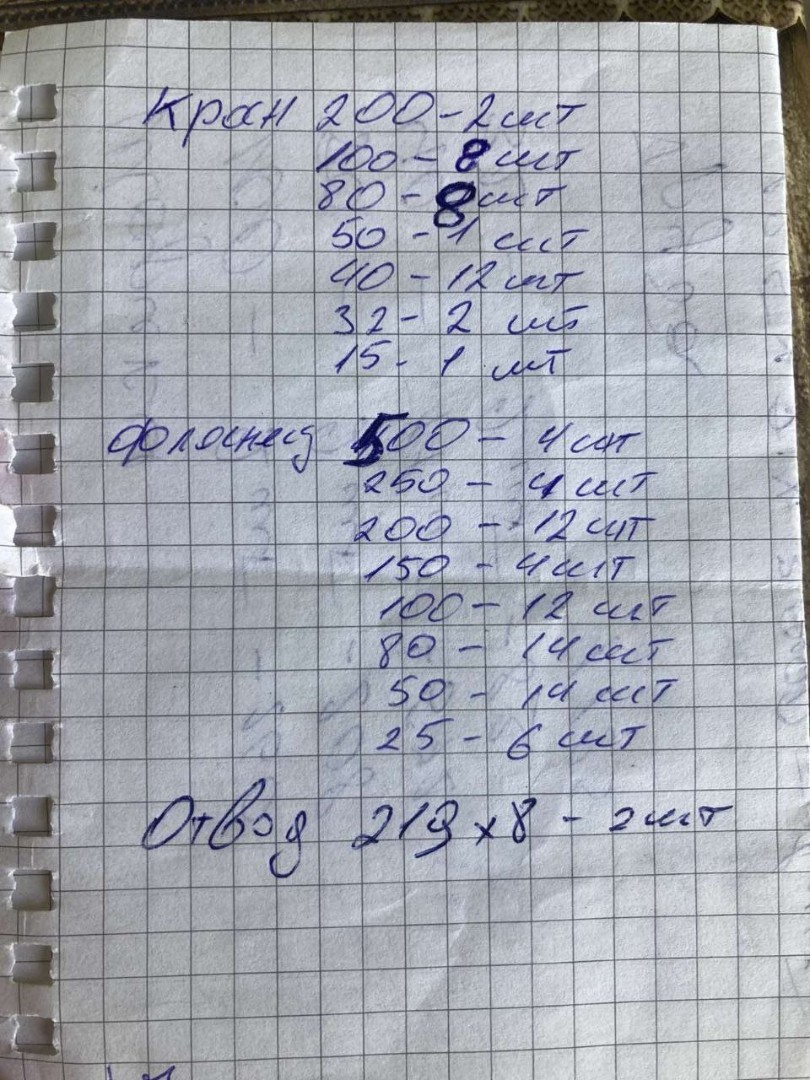 Кран 200 - 2 шт
100 - 8 шт
80 - 8 шт
50 - 1 шт
40 - 12 шт
32 - 2 шт
15 - 1 шт
Фланец 500 - 4 шт
250 - 4 шт
200 - 12 шт
150 - 4 шт
100 - 12 шт
80 - 14 шт
50 - 14 шт
25 - 6 шт
Отвод 219 х 8 - 2 шт